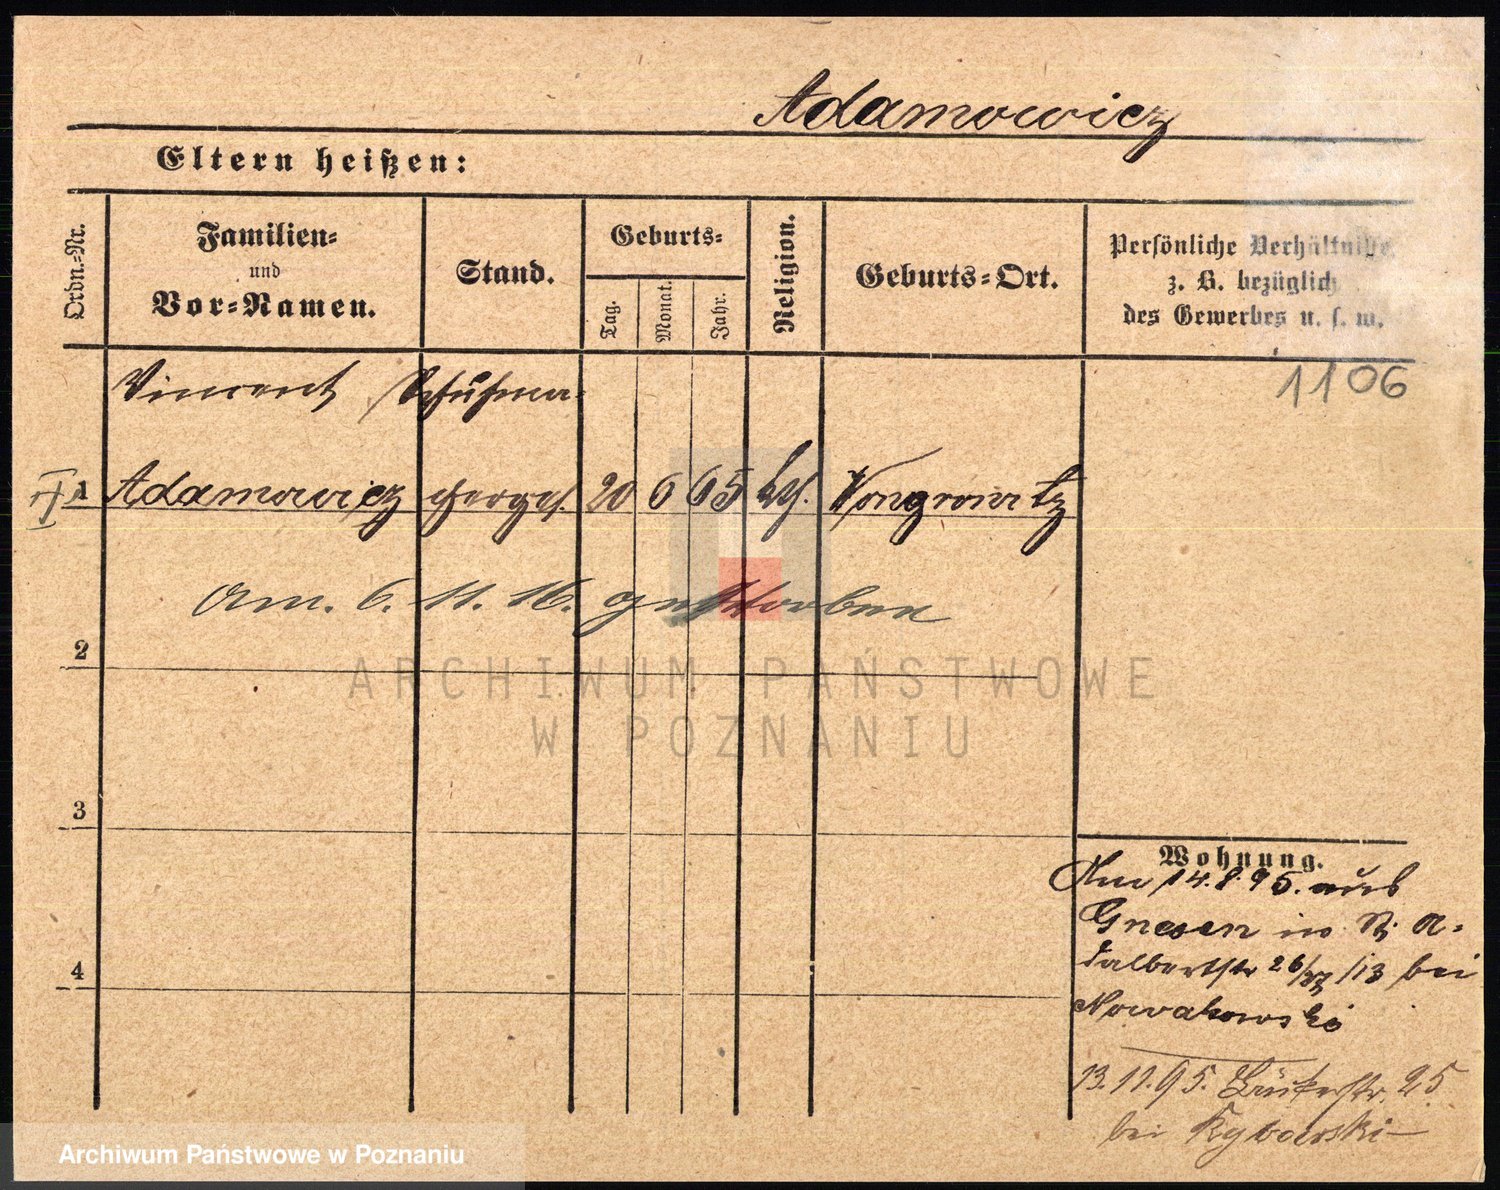 Adamowicz
Eltern heißen:
Ordn.-Nr.
Familien-
und
Vor-Namen.
Stand.
Geburts-
Tag.
Monat.
Jahr.
Religion.
Geburts-Ort.
Persönliche Verhältnisse
z. B. bezüglich
des Gewerbes u. s. w.
1106
Vincent Schuhma-
1 Adamowicz cherges. 20 6 65 kth. Wongrowitz
Am. 6. 11. 16. gestorben
2
3
4
Wohnung.
Am 14.8.95. aus
Gnesen in St. A-
dalbertstr 26/27 /13 bei
Nowakowski
13.11.95. 25
bei
ARCHIWUM PAŃSTWOWE
W POZNANIU
Archiwum Państwowe w Poznaniu